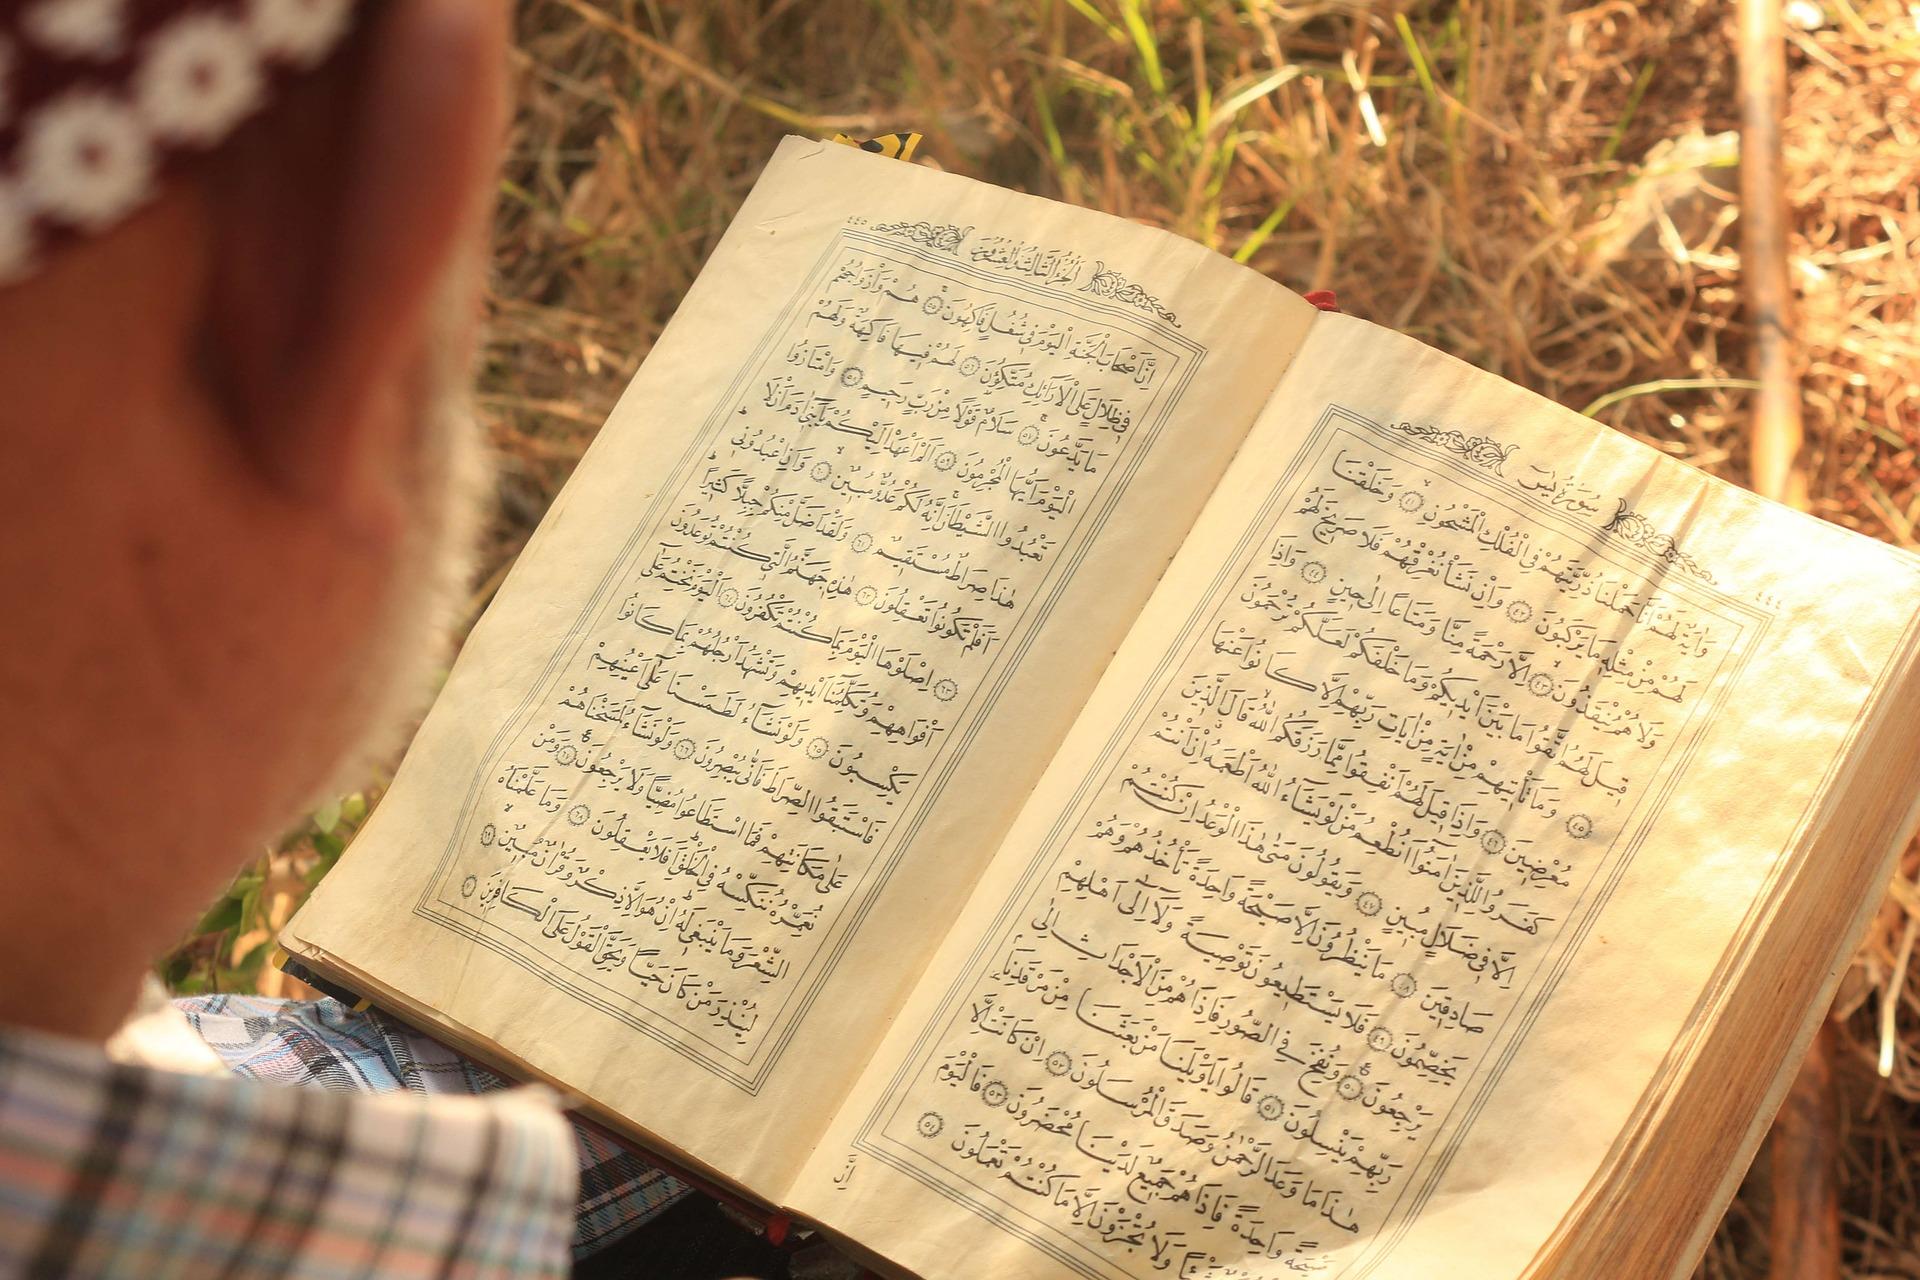 ٤٤٤
سُورَةُ يٰسٓ
وَاٰيَةٌ لَهُمْ اَنَّا حَمَلْنَا ذُرِّيَّتَهُمْ فِى الْفُلْكِ الْمَشْحُونِ ﴿٤١﴾ وَخَلَقْنَا
لَهُمْ مِنْ مِثْلِهِ مَا يَرْكَبُونَ ﴿٤٢﴾ وَاِنْ نَشَأْ نُغْرِقْهُمْ فَلَا صَرِيخَ لَهُمْ
وَلَا هُمْ يُنْقَذُونَ ﴿٤٣﴾ اِلَّا رَحْمَةً مِنَّا وَمَتَاعًا اِلٰى حِينٍ ﴿٤٤﴾ وَاِذَا
قِيلَ لَهُمُ اتَّقُوا مَا بَيْنَ اَيْدِيكُمْ وَمَا خَلْفَكُمْ لَعَلَّكُمْ تُرْحَمُونَ
﴿٤٥﴾ وَمَا تَأْتِيهِمْ مِنْ اٰيَةٍ مِنْ اٰيَاتِ رَبِّهِمْ اِلَّا كَانُوا عَنْهَا
مُعْرِضِينَ ﴿٤٦﴾ وَاِذَا قِيلَ لَهُمْ اَنْفِقُوا مِمَّا رَزَقَكُمُ اللّٰهُ قَالَ الَّذِينَ
كَفَرُوا لِلَّذِينَ اٰمَنُوا اَنُطْعِمُ مَنْ لَوْ يَشَاءُ اللّٰهُ اَطْعَمَهُ اِنْ اَنْتُمْ
اِلَّا فِى ضَلَالٍ مُبِينٍ ﴿٤٧﴾ وَيَقُولُونَ مَتٰى هٰذَا الْوَعْدُ اِنْ كُنْتُمْ
صَادِقِينَ ﴿٤٨﴾ مَا يَنْظُرُونَ اِلَّا صَيْحَةً وَاحِدَةً تَأْخُذُهُمْ وَهُمْ
يَخِصِّمُونَ ﴿٤٩﴾ فَلَا يَسْتَطِيعُونَ تَوْصِيَةً وَلَا اِلٰى اَهْلِهِمْ
يَرْجِعُونَ ﴿٥٠﴾ وَنُفِخَ فِى الصُّورِ فَاِذَا هُمْ مِنَ الْاَجْدَاثِ اِلٰى
رَبِّهِمْ يَنْسِلُونَ ﴿٥١﴾ قَالُوا يَا وَيْلَنَا مَنْ بَعَثَنَا مِنْ مَرْقَدِنَا
هٰذَا مَا وَعَدَ الرَّحْمٰنُ وَصَدَقَ الْمُرْسَلُونَ ﴿٥٢﴾ اِنْ كَانَتْ اِلَّا
صَيْحَةً وَاحِدَةً فَاِذَا هُمْ جَمِيعٌ لَدَيْنَا مُحْضَرُونَ ﴿٥٣﴾ فَالْيَوْمَ
شَيْئًا وَلَا تُجْزَوْنَ اِلَّا مَا كُنْتُمْ تَعْمَلُونَ ﴿٥٤﴾
اِنَّ
٤٤٥
اَلْجُزْءُ الثَّالِثُ وَالْعِشْرُونَ
اِنَّ اَصْحَابَ الْجَنَّةِ الْيَوْمَ فِى شُغُلٍ فَاكِهُونَ ﴿٥٥﴾ هُمْ وَاَزْوَاجُهُمْ
فِى ظِلَالٍ عَلَى الْاَرَائِكِ مُتَّكِؤُنَ ﴿٥٦﴾ لَهُمْ فِيهَا فَاكِهَةٌ وَلَهُمْ
مَا يَدَّعُونَ ﴿٥٧﴾ سَلَامٌ قَوْلًا مِنْ رَبٍّ رَحِيمٍ ﴿٥٨﴾ وَامْتَازُوا
الْيَوْمَ اَيُّهَا الْمُجْرِمُونَ ﴿٥٩﴾ اَلَمْ اَعْهَدْ اِلَيْكُمْ يَا بَنِى اٰدَمَ اَنْ لَا
تَعْبُدُوا الشَّيْطَانَ اِنَّهُ لَكُمْ عَدُوٌّ مُبِينٌ ﴿٦٠﴾ وَاَنِ اعْبُدُونِى
هٰذَا صِرَاطٌ مُسْتَقِيمٌ ﴿٦١﴾ وَلَقَدْ اَضَلَّ مِنْكُمْ جِبِلًّا كَثِيرًا
اَفَلَمْ تَكُونُوا تَعْقِلُونَ ﴿٦٢﴾ هٰذِهِ جَهَنَّمُ الَّتِى كُنْتُمْ تُوعَدُونَ
﴿٦٣﴾ اِصْلَوْهَا الْيَوْمَ بِمَا كُنْتُمْ تَكْفُرُونَ ﴿٦٤﴾ اَلْيَوْمَ نَخْتِمُ عَلٰى
اَفْوَاهِهِمْ وَتُكَلِّمُنَا اَيْدِيهِمْ وَتَشْهَدُ اَرْجُلُهُمْ بِمَا كَانُوا
يَكْسِبُونَ ﴿٦٥﴾ وَلَوْ نَشَاءُ لَطَمَسْنَا عَلٰى اَعْيُنِهِمْ
فَاسْتَبَقُوا الصِّرَاطَ فَاَنّٰى يُبْصِرُونَ ﴿٦٦﴾ وَلَوْ نَشَاءُ لَمَسَخْنَاهُمْ
عَلٰى مَكَانَتِهِمْ فَمَا اسْتَطَاعُوا مُضِيًّا وَلَا يَرْجِعُونَ ﴿٦٧﴾ وَمَنْ
نُعَمِّرْهُ نُنَكِّسْهُ فِى الْخَلْقِ اَفَلَا يَعْقِلُونَ ﴿٦٨﴾ وَمَا عَلَّمْنَاهُ
الشِّعْرَ وَمَا يَنْبَغِى لَهُ اِنْ هُوَ اِلَّا ذِكْرٌ وَقُرْاٰنٌ مُبِينٌ ﴿٦٩﴾
لِيُنْذِرَ مَنْ كَانَ حَيًّا وَيَحِقَّ الْقَوْلُ عَلَى الْكَافِرِينَ ﴿٧٠﴾